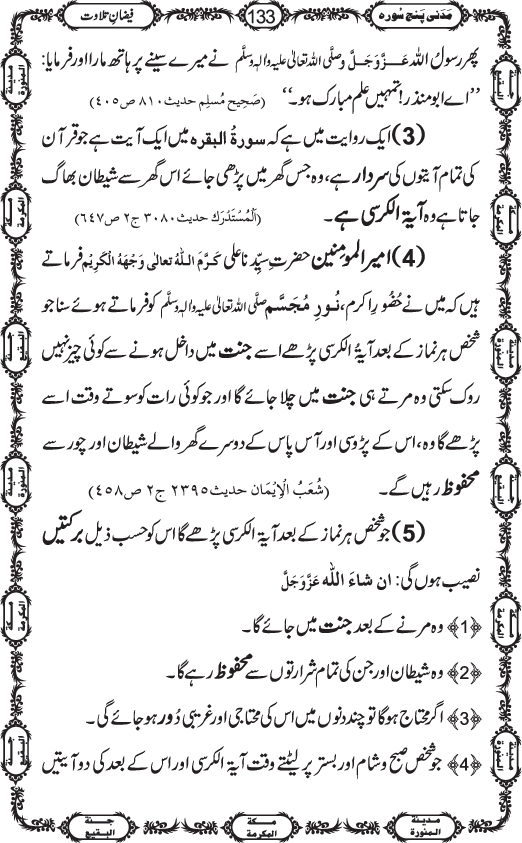 مَدَنی پنج سُورہ 133 فیضانِ تلاوت
پھر رسولُ اللہ عَزَّوَجَلَّ وصلَّی اللہ تعالیٰ علیہ واٰلہٖ وسلَّم نے میرے سینے پر ہاتھ مارا اور فرمایا:
’’اے ابو منذر! تمہیں علم مبارک ہو۔‘‘ (صَحِیح مُسلِم حدیث ۸۱۰ ص۴۰۵)
(3) ایک روایت میں ہے کہ سورۃُ البقرہ میں ایک آیت ہے جو قرآن
کی تمام آیتوں کی سردار ہے، وہ جس گھر میں پڑھی جائے اس گھر سے شیطان بھاگ
جاتا ہے وہ آیۃ الکرسی ہے۔ (اَلْمُسْتَدْرَك حدیث ۳۰۸۰ ج۲ ص۶۴۷)
(4) امیرالمؤمنین حضرتِ سیِّدنا علی کَرَّمَ اللہُ تعالٰی وَجْہَہُ الْکَرِیْم فرماتے
ہیں کہ میں نے حُضُورِ اکرم، نُورِ مُجَسَّم صلَّی اللہ تعالیٰ علیہ واٰلہٖ وسلَّم کو فرماتے ہوئے سنا جو
شخص ہر نماز کے بعد آیۃُ الکرسی پڑھے اسے جنت میں داخل ہونے سے کوئی چیز نہیں
روک سکتی وہ مرتے ہی جنت میں چلا جائے گا اور جو کوئی رات کو سوتے وقت اسے
پڑھے گا وہ، اس کے پڑوسی اور آس پاس کے دوسرے گھر والے شیطان اور چور سے
محفوظ رہیں گے۔ (شُعَبُ الْاِیْمَان حدیث ۲۳۹۵ ج۲ ص۴۵۸)
(5) جو شخص ہر نماز کے بعد آیۃ الکرسی پڑھے گا اس کو حسب ذیل برکتیں
نصیب ہوں گی: ان شاءَ اللہ عَزَّوَجَلَّ
﴿1﴾ وہ مرنے کے بعد جنت میں جائے گا۔
﴿2﴾ وہ شیطان اور جن کی تمام شرارتوں سے محفوظ رہے گا۔
﴿3﴾ اگر محتاج ہوگا تو چند دنوں میں اس کی محتاجی اور غریبی دُور ہو جائے گی۔
﴿4﴾ جو شخص صبح و شام اور بستر پر لیٹتے وقت آیۃ الکرسی اور اس کے بعد کی دو آیتیں
مدینۃ المنورۃ
مکۃ المکرمۃ
جنۃ البقیع